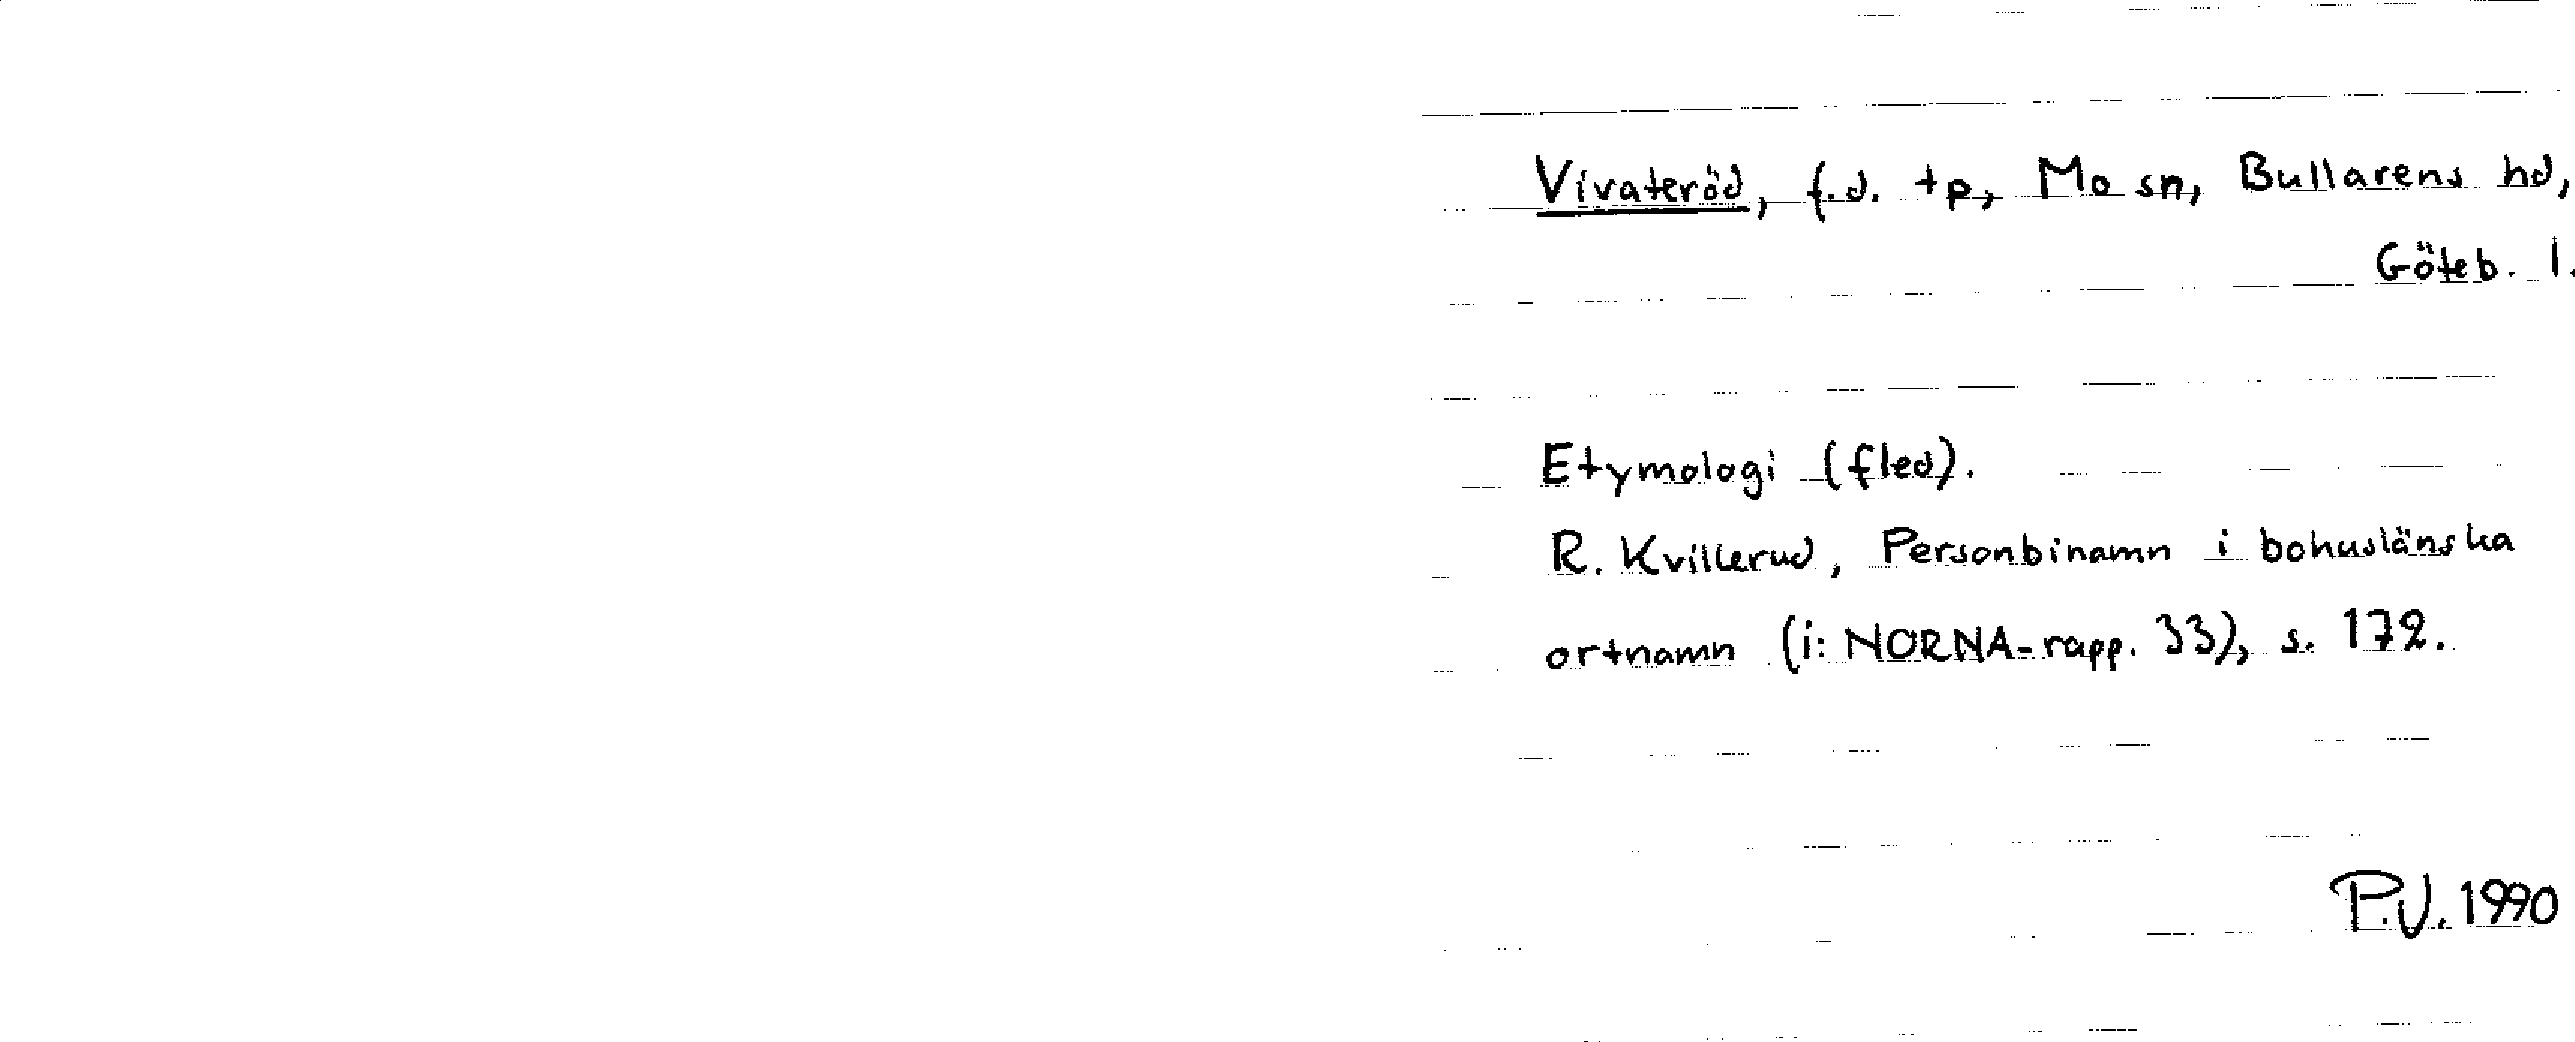 Vivateröd, f.d. tp, Mo sn, Bullarens hd,
Göteb. l.
Etymologi (fled).
R. Kvillerud, Personbinamn i bohuslänska
ortnamn (i: NORNA-rapp. 33), s. 172.
P.U. 1990